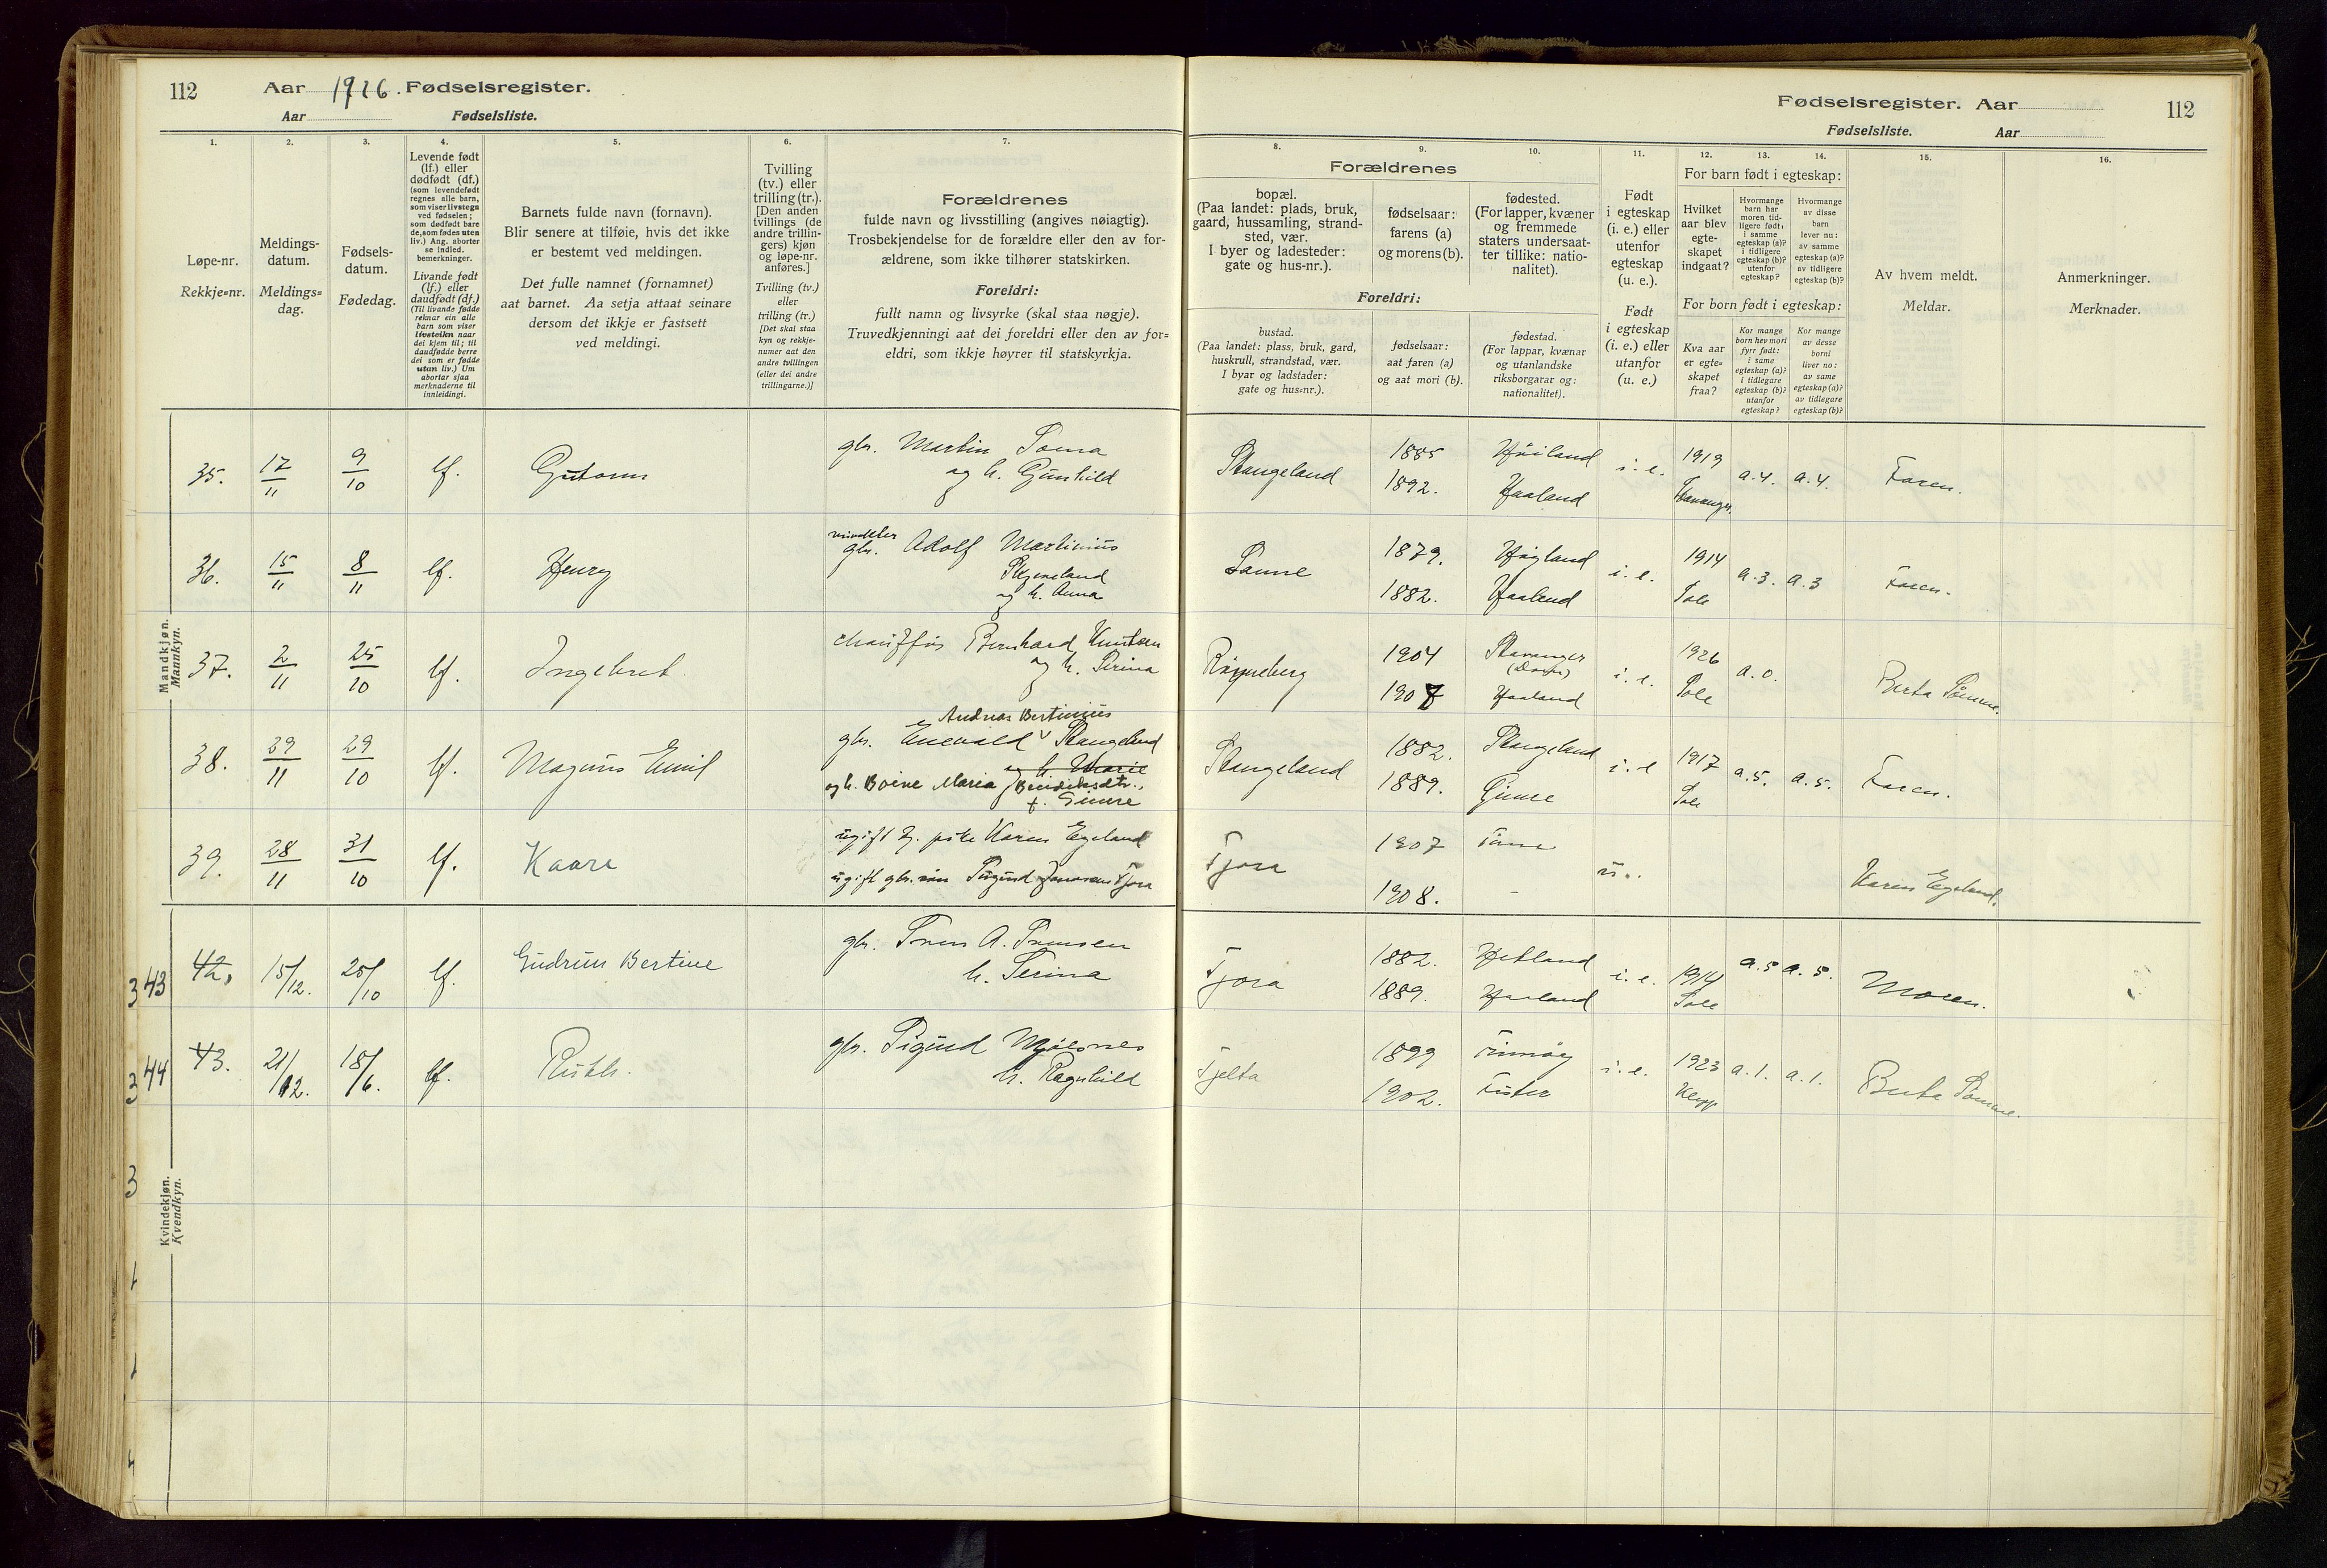 112
Aar 1926. Fødselsregister.
Aar Fødselsliste.
1.
2.
3.
4.
5.
6.
7.
Løpe-nr.
Rekkje=nr.
Meldings-
datum.
Meldings=
dag.
Fødsels-
datum.
Fødedag.
Levende født
(lf.) eller
dødfødt (df.)
(som levendefødt
regnes alle barn,
som viser livstegn
ved fødselen;
som dødfødt bare
de, som fødes uten
liv.) Ang. aborter
se indled.
bemerkninger.
Livande født
(lf.) eller
daudfødt (df.)
(Til livande fødde
reknar ein alle
barn som viser
livsteikn naar
dei kjem til; til
daudfødde berre
dei som er fødde
utan liv.) Um
abortar sjaa
merknaderne til
innleidingi.
Barnets fulde navn (fornavn).
Blir senere at tilføie, hvis det ikke
er bestemt ved meldingen.
Det fulle namnet (fornamnet)
aat barnet. Aa setja attaat seinare
dersom det ikkje er fastsett
ved meldingi.
Tvilling
(tv.) eller
trilling (tr.).
[Den anden
tvillings (de
andre trillin-
gers) kjøn
og løpe-nr.
anføres.]
Tvilling (tv.)
eller
trilling (tr.)
[Det skal staa
kyn og rekkje-
numer aat den
andre tvillingen
(eller dei andre
trillingarne.)]
Forældrenes
fulde navn og livsstilling (angives nøiagtig).
Trosbekjendelse for de forældre eller den av for-
ældrene, som ikke tilhører statskirken.
Foreldri:
fullt namn og livsyrke (skal staa nøgje).
Truvedkjenningi aat dei foreldri eller den av for=
eldri, som ikkje høyrer til statskyrkja.
Fødselsregister. Aar
112
Fødselsliste. Aar
8.
9.
10.
11.
12.
13.
14.
15.
16.
Forældrenes
bopæl.
(Paa landet: plads, bruk,
gaard, hussamling, strand-
sted, vær.
I byer og ladesteder:
gate og hus-nr.).
fødselsaar:
farens (a)
og morens (b).
fødested.
(For lapper, kvæner
og fremmede
staters undersaat-
ter tillike: natio-
nalitet).
Foreldri:
bustad.
(Paa landet: plass, bruk, gard,
huskrull, strandstad, vær.
I byar og ladstader:
gate og hus=nr.).
fødselsaar:
aat faren (a)
og aat mori (b).
fødestad.
(For lappar, kvænar
og utanlandske
riksborgarar og:
nationalitet).
Født
i egteskap
(i. e.) eller
utenfor
egteskap
(u. e.).
Født
i egteskap
(i. e.) eller
utanfor
(u. e.)
For barn født i egteskap:
Hvilket
aar blev
egte-
skapet
indgaat?
Hvormange
barn har
moren tid-
ligere født:
i samme
egteskap (a)?
i tidligere
egteskap (b)?
utenfor
egteskap?
Hvormange
av disse
barn
lever nu:
av samme
egteskap (a)?
av tidligere
egteskap (b)?
For born født i egteskap:
Kva aar
er egte=
skapet
fraa?
Kor mange
born hev mori
fyrr født:
i same
egteskap (a)?
i tidlegare
egteskap (b)?
utanfor
egteskap?
Kor mange
av desse
borni
liver no:
av same
egteskap (a)?
av tidlegare
egteskap (b)?
Av hvem meldt.
Meldar.
Anmerkninger.
Merknader.
Mandkjøn.
Mannkyn.
35. 17/11 9/10 lf. Gutorm gbr. Martin Soma
og h. Gunhild
Stangeland 1885 Høiland i. e. 1919 a.4. a.4. Faren.
1892. Haaland Stavanger
36. 15/11 8/11 lf. Henry gbr. Adolf Martinius
og h. Anna
Sømme 1879. Høyland i. e. 1914 a.3. a.3 Faren.
1882. Haaland Sole
37. 2/11 25/10 lf. Ingebret chauffør Bernhard Knutsen
og h. Serina
1904 Stavanger i. e. 1926 a.0. Berta Sømme.
1907 Haaland Sole
38. 29/11 29/10 lf. Magnus Emil Andreas Bertinius
gbr. Enevald Stangeland
og h. Marie
og h. Boine Maria Bendiksdtr.,
f. Gimre
Stangeland 1882. Stangeland i. e 1917 a.5. a.5. Faren.
1889. Gimre Sole
39. 28/11 31/10 lf. Kaare ugift tj. pike Karen Egeland
ugift gbr. søn Sigurd Tjora
Tjora 1907 u.. Karen Egeland.
1908. -
43 42. 15/12. 25/10 lf. Gudrun Bertine gbr. Sven A. Svensen
h. Serina
Tjora 1882. Hetland i. e. 1914 a.5 a.5. Moren.
1889. Haaland Sole
44 43. 21/12. 18/6. lf. Ruth. gbr. Sigurd Mjølsnes
h. Ragnhild
Tjelta 1899 Finnøy i. e. 1923 a.1. a.1. Berta Sømme.
1902. Fister Klepp
Kvindekjøn.
Kvendkyn.